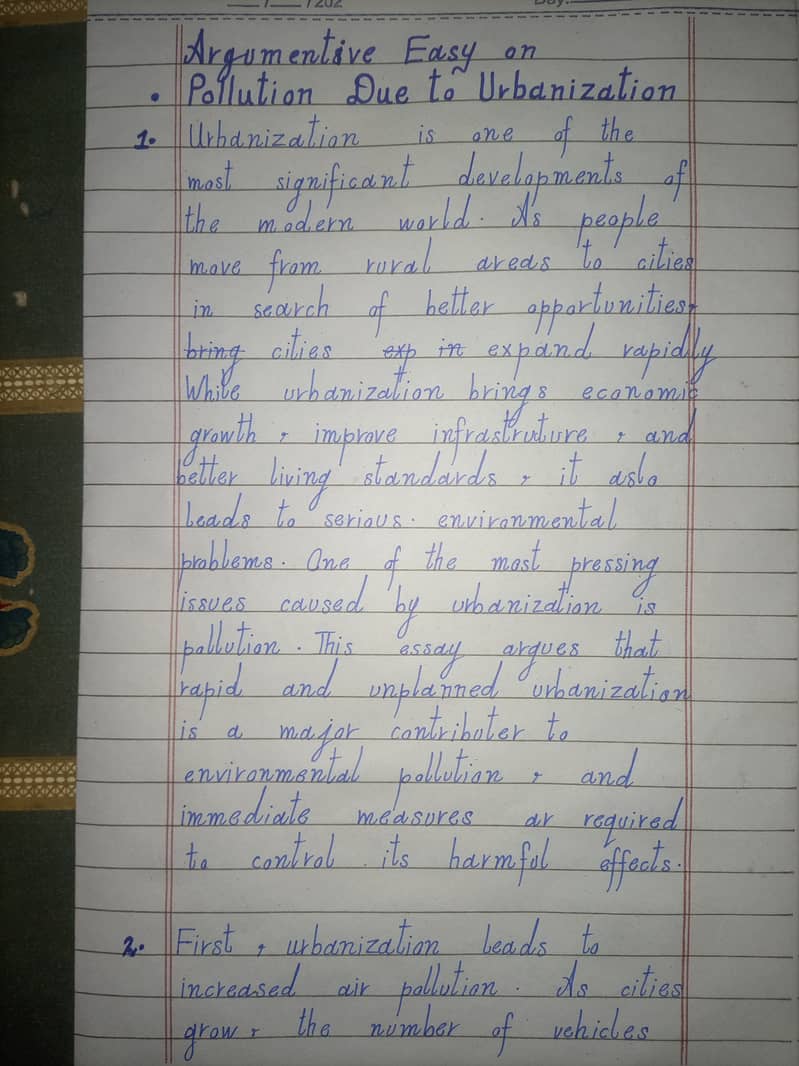 Argumentive Easy on
• Pollution Due to Urbanization
1. Urbanization is one of the
most significant developments of
the modern world. As people
move from rural areas to cities
in search of better opportunities,
bring cities exp in expand rapidly
While urbanization brings economic
growth, improve infrastruture, and
better living standards, it aslo
leads to serious. environmental
problems. One of the most pressing
issues caused by urbanization is
pollution. This essay argues that
rapid and unplanned urbanization
is a major contributer to
environmental pollution, and
immediate measures ar required
to control its harmful effects.
2. First, urbanization leads to
increased air pollution. As cities
grow, the number of vehicles